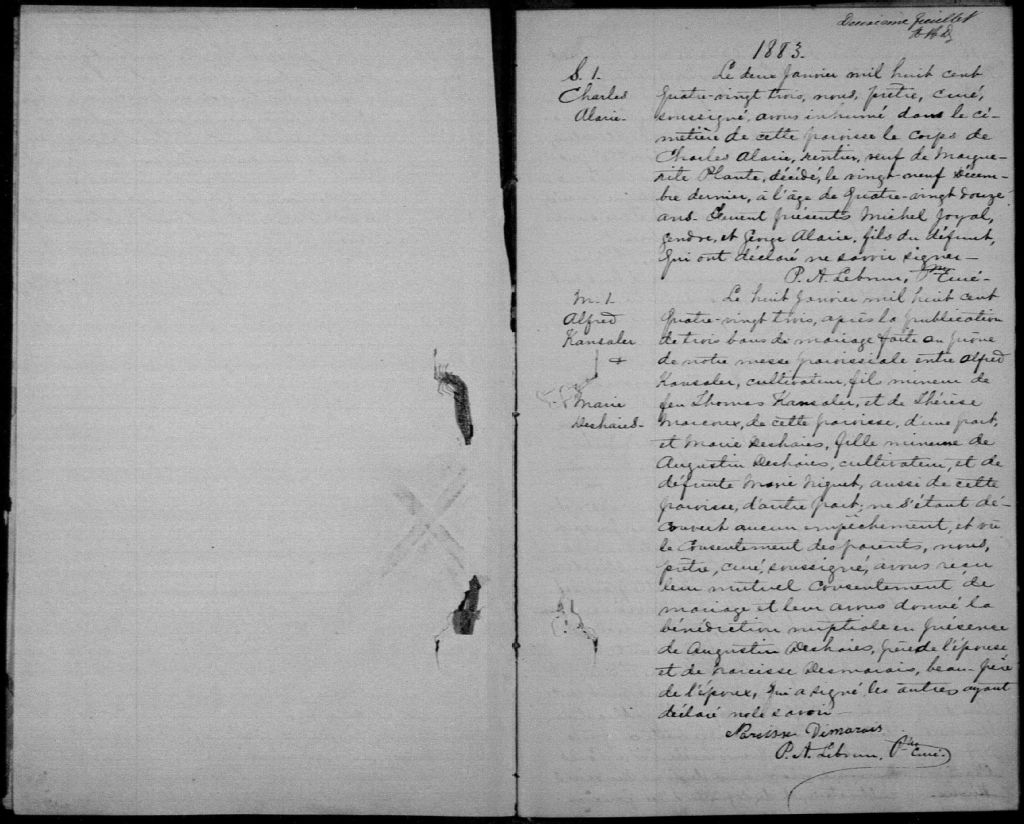 Deuxième feuillet
1883.
S. 1.
Charles
Alarie.
Le deux Janvier mil huit cent
quatre-vingt trois, nous, prêtre, curé,
soussigné, avons inhumé dans le ci-
metière de cette paroisse le corps de
Charles Alarie, rentier, veuf de Margue-
rite Plante, décédé, le vingt-neuf Décem-
bre dernier, à l'âge de quatre-vingt douze
ans. Furent présents Michel Joyal,
gendre, et George Alarie, fils du défunt,
qui ont déclaré ne savoir signer—
P. A. Lebrun, Ptre Curé-
M. 1.
Alfred
Kansaler
+
Marie
Deshaies-
Le huit Janvier mil huit cent
quatre-vingt trois, après la publication
de trois bans de mariage faite au prône
de notre messe paroissiale entre Alfred
Kansaler, cultivateur, fils mineur de
feu Thomas Kansaler, et de Thérèse
Marcoux, de cette paroisse, d'une part,
et Marie Deshaies, fille mineure de
Augustin Deshaies, cultivateur, et de
défunte Marie, aussi de cette
paroisse, d'autre part; ne s'étant dé-
couvert aucun empêchement, et vu
le consentement des parents, nous,
prêtre, curé, soussigné, avons reçu
leur mutuel consentement de
mariage et leur avons donné la
bénédiction nuptiale en présence
de Augustin Deshaies, père de l'épouse
et de Narcisse Desmarais, beau-père
de l'époux, qui a signé, les autres ayant
déclaré ne le savoir—
Narcisse Dimarais
P. A. Lebrun, Ptre Curé.